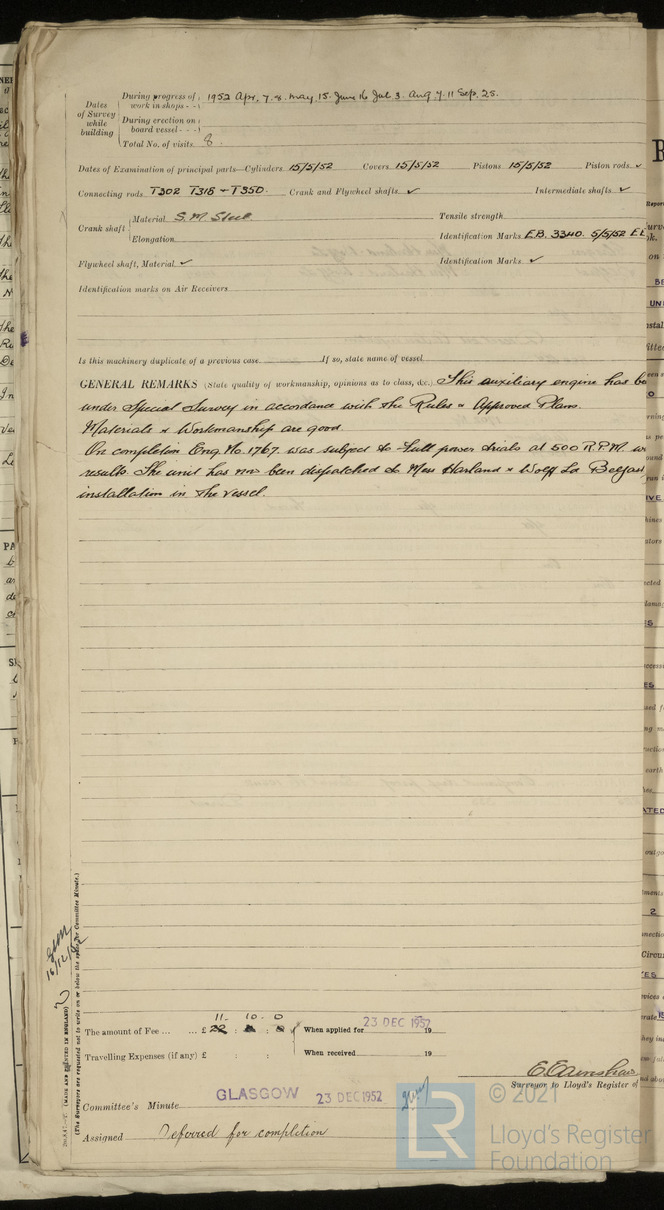 During progress of work in shops - - 1952 Apr. 7. 8. May 15. June 16 Jul 3. Aug 7. 11 Sep. 25.
Dates of Survey while building
During erection on board vessel - - -
Total No. of visits 8.
Dates of Examination of principal parts—Cylinders 15/5/52 Covers 15/5/52 Pistons 15/5/52 Piston rods ✓
Connecting rods T302 T316 - T350. Crank and Flywheel shafts ✓ Intermediate shafts ✓
Crank shaft Material S.M. Steel Tensile strength
Elongation Identification Marks E.B. 3340. 5/5/52 E.E
Flywheel shaft, Material ✓ Identification Marks ✓
Identification marks on Air Receivers
Is this machinery duplicate of a previous case If so, state name of vessel
GENERAL REMARKS (State quality of workmanship, opinions as to class, &c.) This auxiliary engine has be
under Special Survey in accordance with the Rules & Approved Plans.
Materials & Workmanship are good.
On completion Eng. No. 1767. was subject to full power trials at 500 R.P.M. w
results. The unit has now been dispatched to Mess Harland & Wolff Ld Belfast
installation in the vessel.
16/12/52
(The Surveyors are requested not to write on or below the space for Committee Minute.)
(MADE AND PRINTED IN ENGLAND)
11 - 10 - 0
The amount of Fee ... ... £ : : When applied for 23 DEC 1952 19
Travelling Expenses (if any) £ : : When received 19
E. Earnshaw
Surveyor to Lloyd's Register of
Committee's Minute GLASGOW 23 DEC 1952
Assigned Deferred for completion
LR
© 2021
Lloyd's Register
Foundation